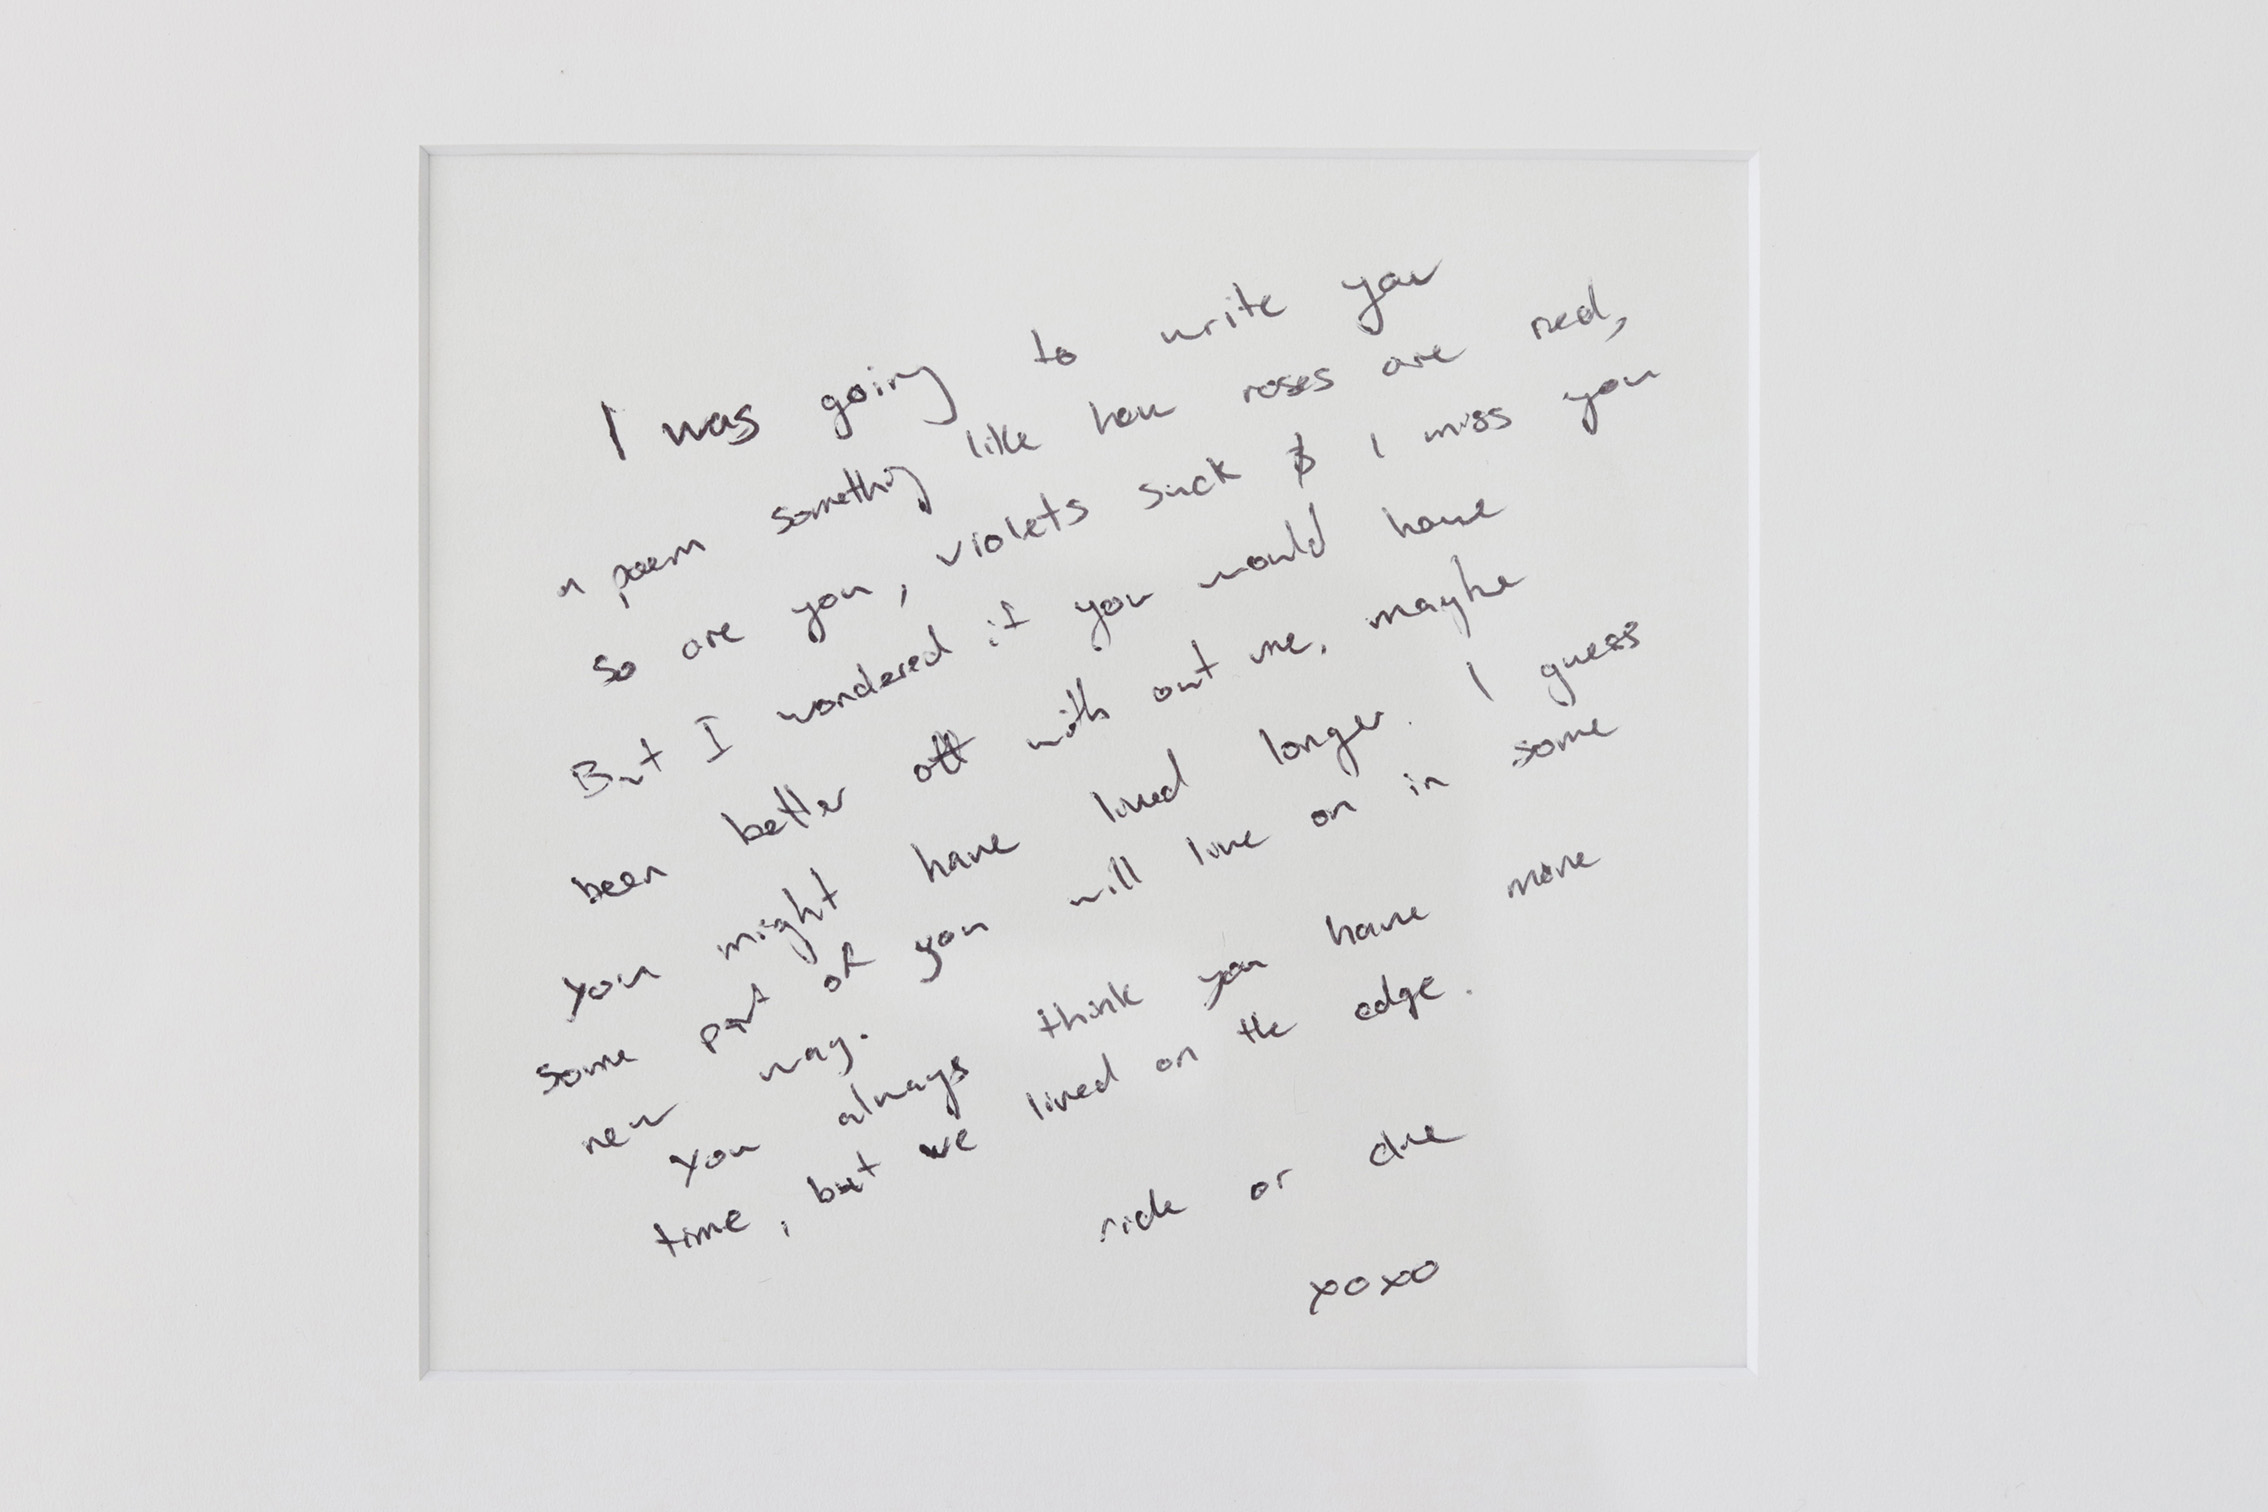 I was going to write you
a poem something like how roses are red,
so are you, violets suck & I miss you
But I wondered if you would have
been better off with out me, maybe
you might have lived longer. I guess
some part of you will live on in some
new way.
You always think you have more
time, but we lived on the edge.
ride or die
xoxo